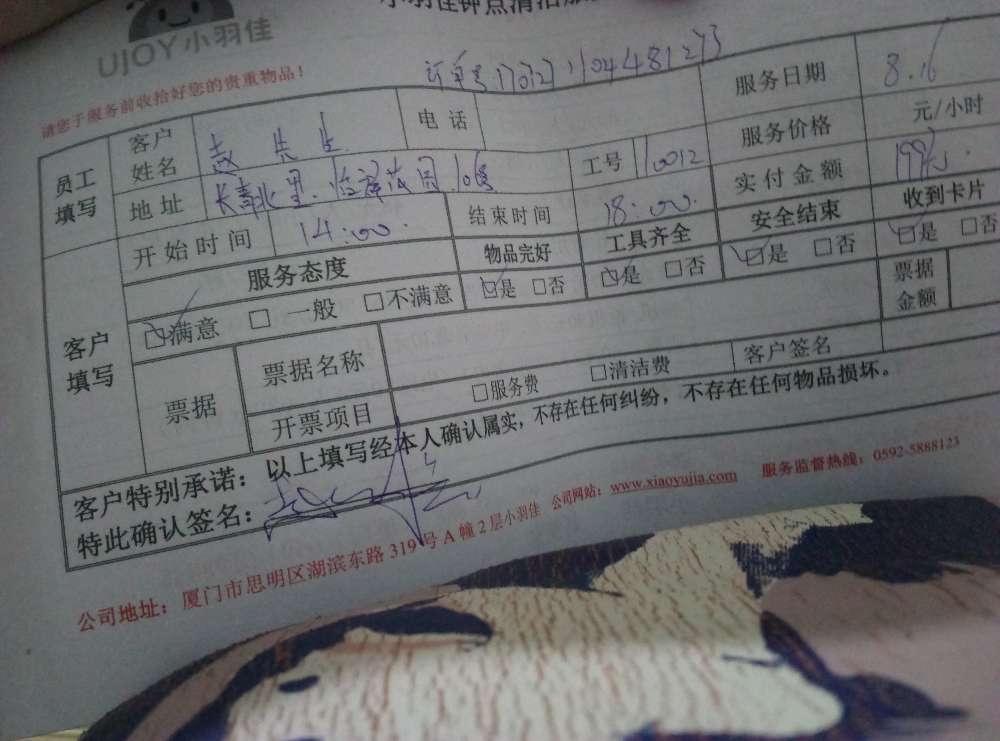 UJOY小羽佳
小羽佳钟点清洁服
请您于服务前收拾好您的贵重物品！
订单号
员工填写
客户姓名 赵先生 电话 服务日期 8.16
地址 长青北里 工号 110012 服务价格 元/小时
开始时间 14:00 结束时间 18:00 实付金额 199元
客户填写
服务态度 物品完好 工具齐全 安全结束 收到卡片
☑满意 □一般 □不满意 ☑是 □否 ☑是 □否 ☑是 □否 ☑是 □否
票据 票据名称 票据金额
开票项目 □服务费 □清洁费 客户签名
客户特别承诺：以上填写经本人确认属实，不存在任何纠纷，不存在任何物品损坏。
特此确认签名：
公司地址：厦门市思明区湖滨东路319号A幢2层小羽佳 公司网站：www.xiaoyujia.com 服务监督热线：0592-5888123